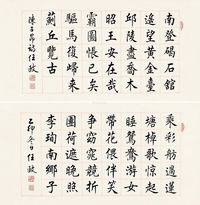 南登碣石館
遙望黃金臺
邱陵盡喬木
昭王安在哉
霸圖悵已矣
驅馬復歸來
薊丘覽古
陳子昂詩任政
乘彩舫過蓮
塘棹歌驚起
睡鴛鴦游女
帶花偎伴笑
爭窈窕競折
團荷遮晚照
李珣南鄉子
乙卯冬任政